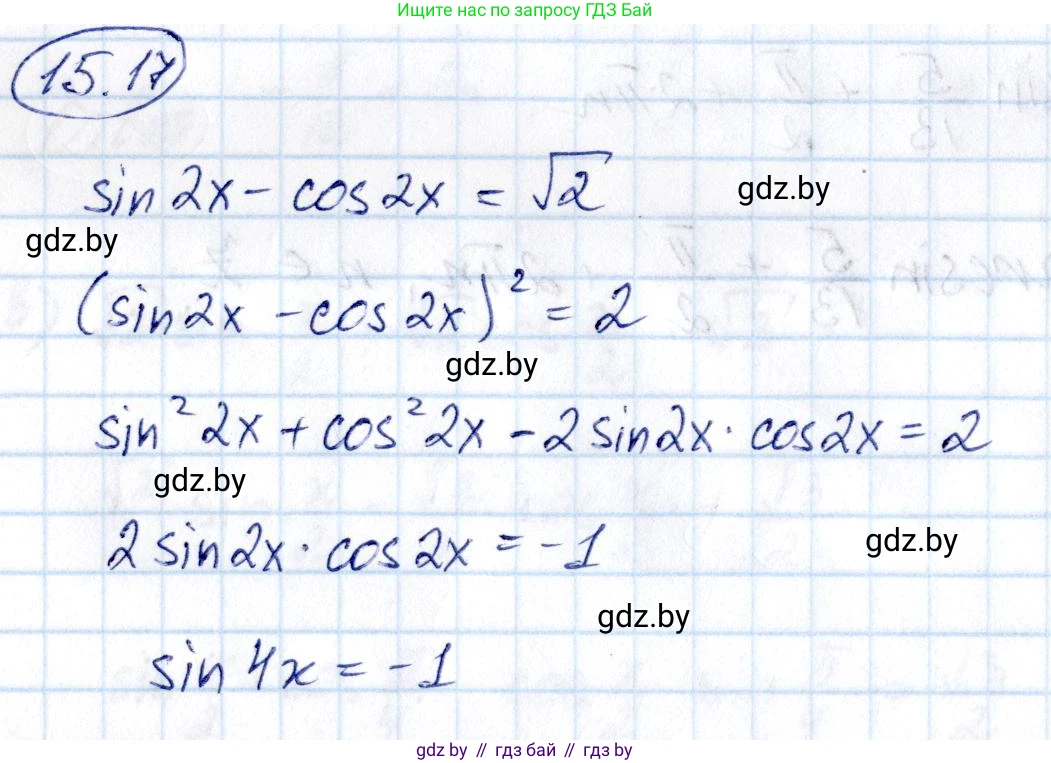 Ищите нас по запросу ГДЗ Бай
15.17
sin 2x - cos 2x = √2
gdz.by
gdz.by
(sin 2x - cos 2x)² = 2
gdz.by
sin² 2x + cos² 2x - 2 sin 2x · cos 2x = 2
gdz.by
2 sin 2x · cos 2x = -1
gdz.by
gdz.by
sin 4x = -1
gdz by // гдз бай // гдз by